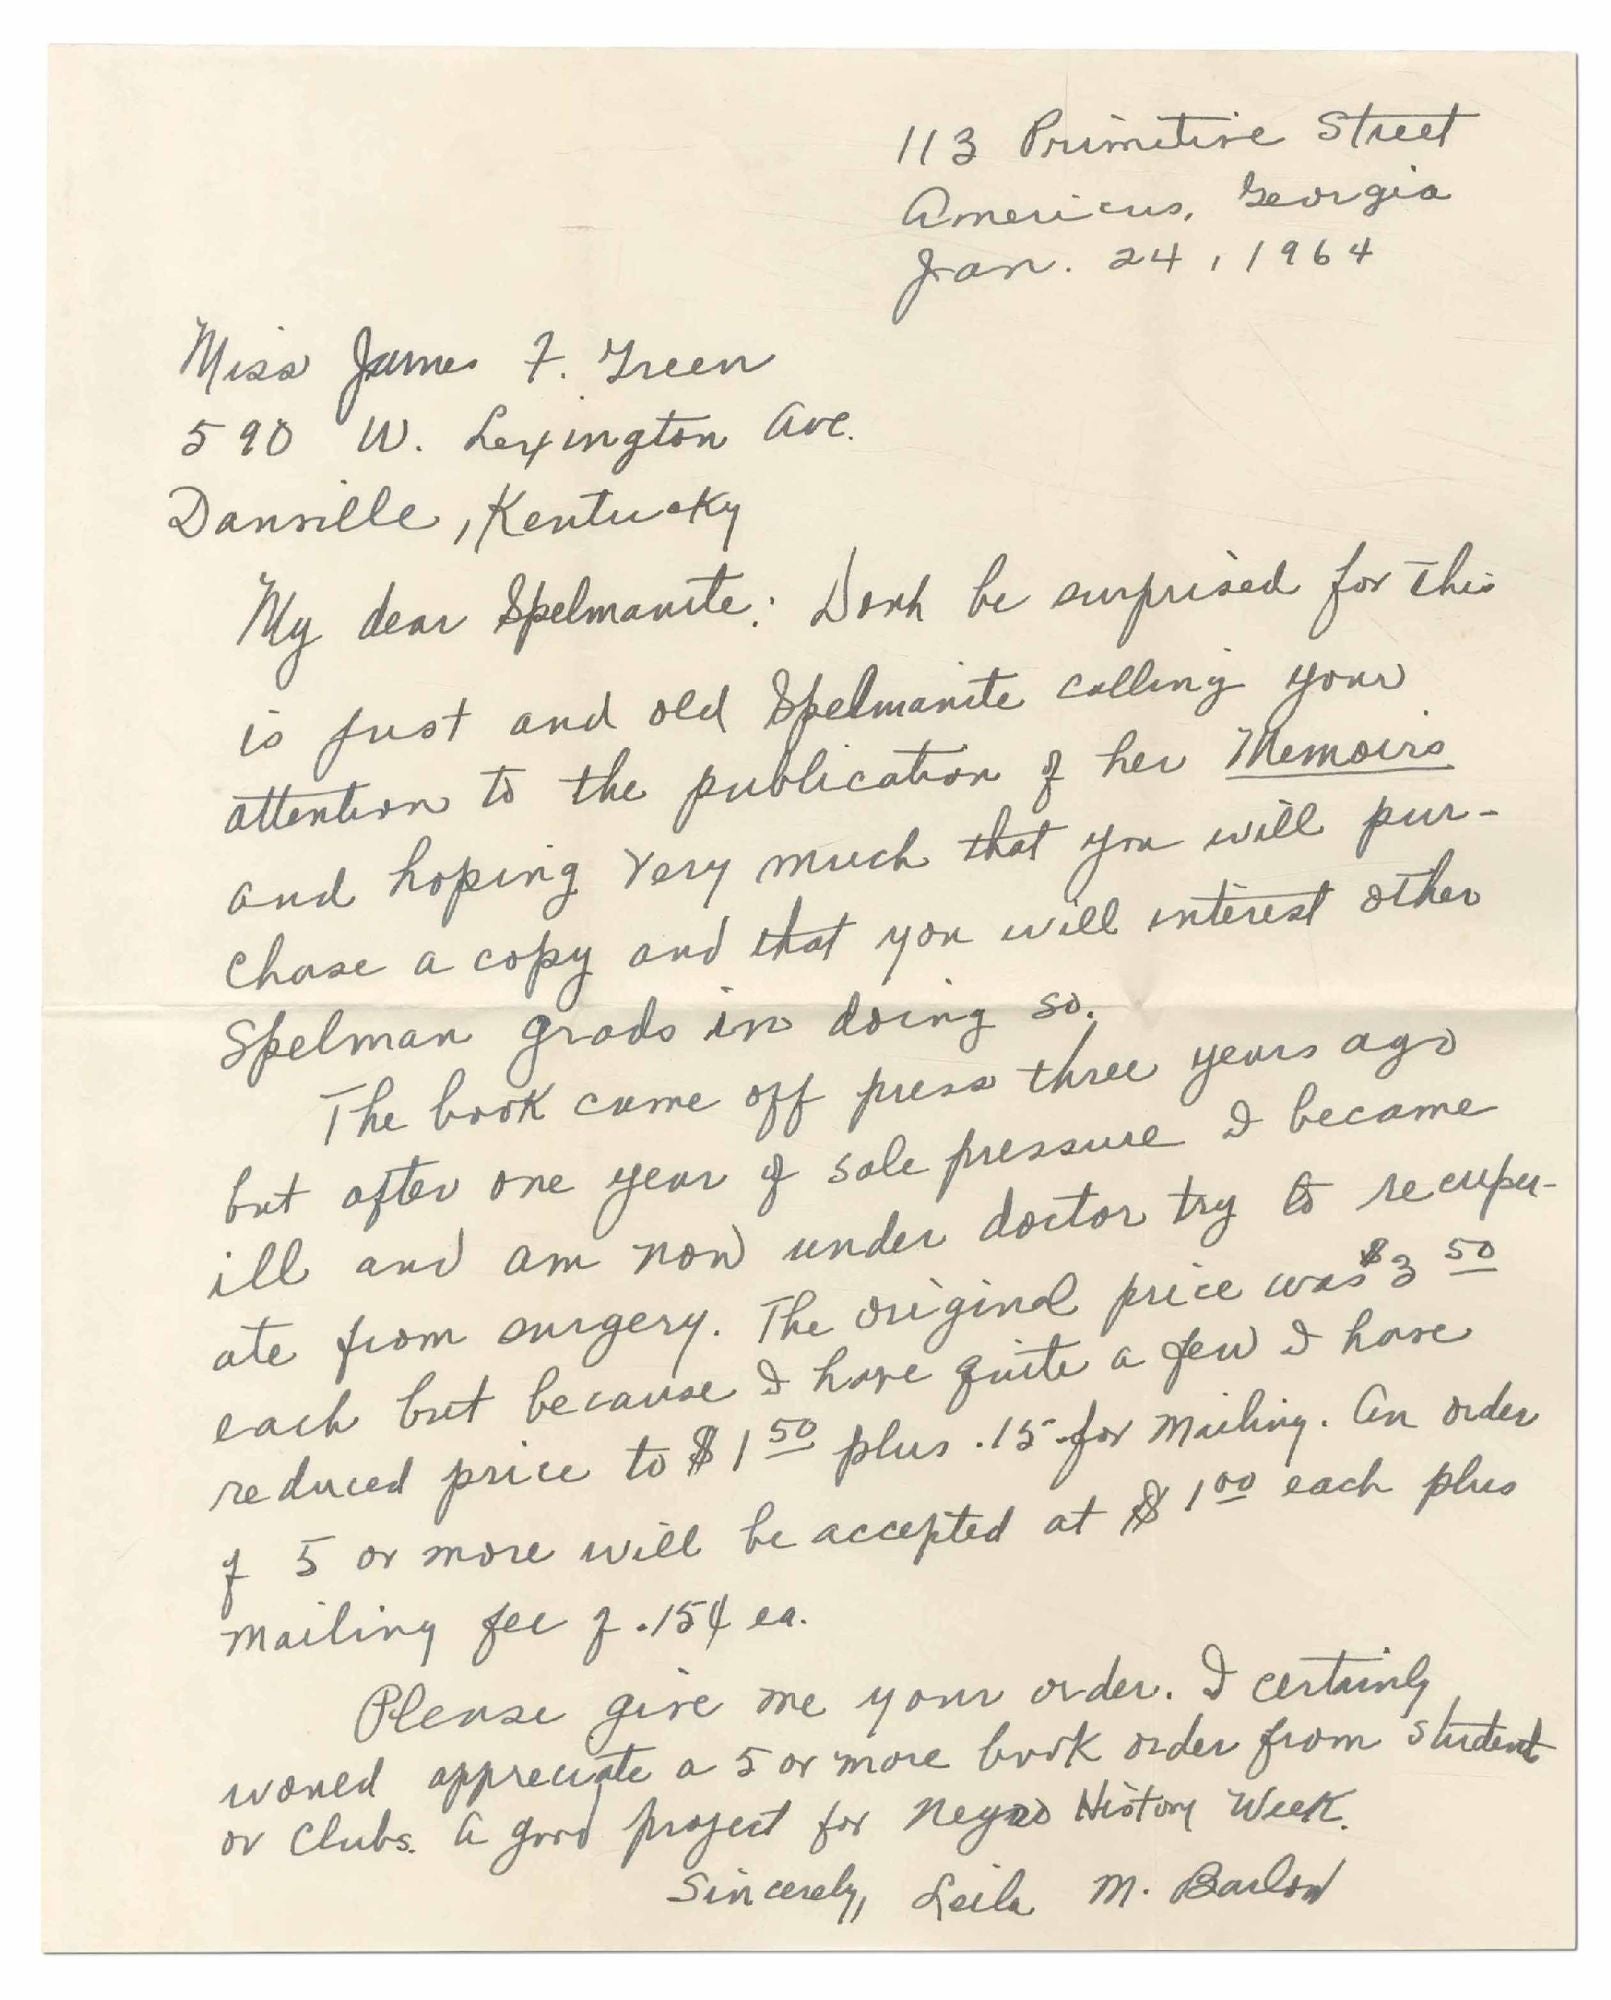 113 Primitive Street
Americus, Georgia
Jan. 24, 1964
Miss James F. Green
590 W. Lexington Ave.
Danville, Kentucky
My dear Spelmanite: Don't be surprised for this
is just and old Spelmanite calling your
attention to the publication of her Memoirs
and hoping very much that you will pur-
chase a copy and that you will interest other
Spelman grads in doing so.
The book came off press three years ago
but after one year of sale pressure I became
ill and am now under doctor try to recuper-
ate from surgery. The original price was $3 50
each but because I have quite a few I have
reduced price to $1 50 plus .15 for mailing. An order
of 5 or more will be accepted at $1 00 each plus
mailing fee of .15¢ ea.
Please give me your order. I certainly
would appreciate a 5 or more book order from student
or clubs. A good project for Negro History Week.
Sincerely, Leila M. Barlow